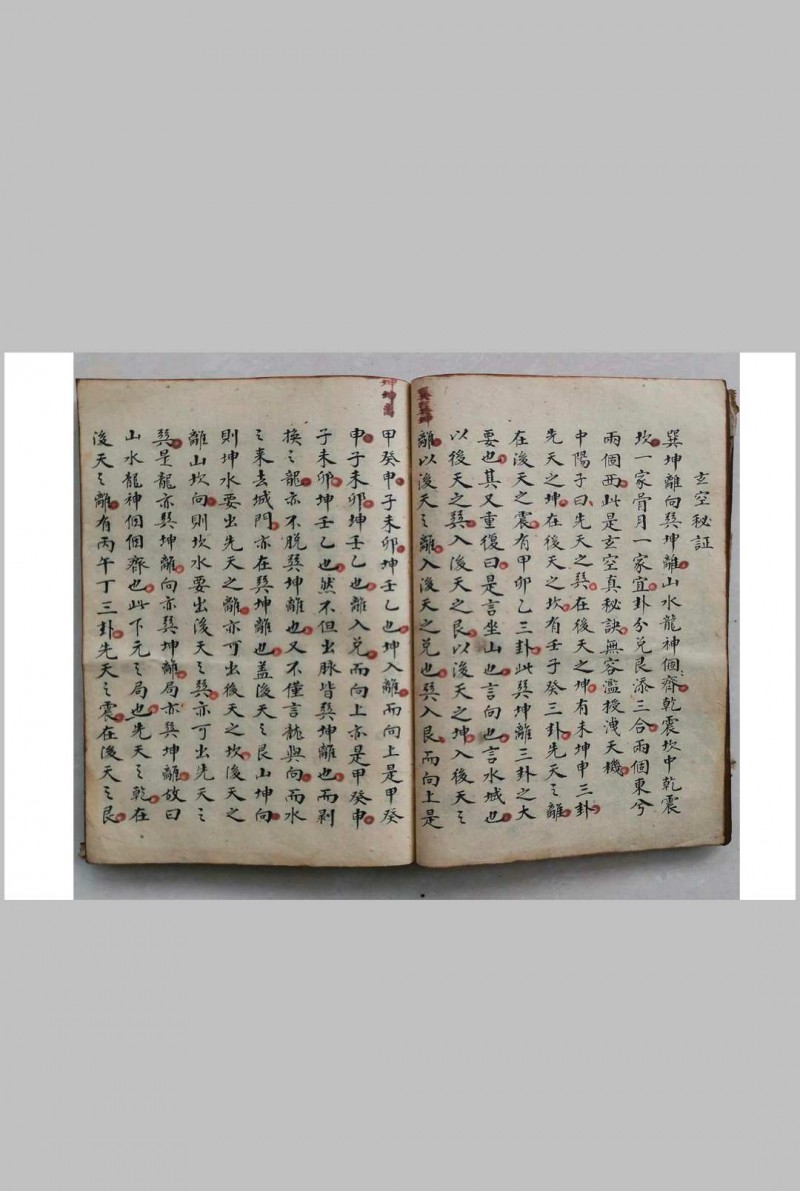 玄空秘証
巽坤離向巽坤離山水龍神個個齊乾震坎中乾震
坎一家骨月一家宜卦分兌艮添三合兩個東兮
兩個西此是玄空真秘訣無容濫授洩天機
中陽子曰先天之巽在後天之坤有未坤申三卦
先天之坤在後天之坎有壬子癸三卦先天之離
在後天之震有甲卯乙三卦此巽坤離三卦之大
要也其又重復曰是言坐山也言向也言水城也
以後天之巽入後天之艮以後天之坤入後天之
離以後天之離入後天之兌也巽入艮而向上是
甲癸申子未卯坤壬乙也坤入離而向上是甲癸
申子未卯坤壬乙也離入兌而向上亦是甲癸申
子未卯坤壬乙也然不但出脉皆巽坤離也而剥
換之龍亦不脫巽坤離也又不僅言龍與向而水
之来去城門亦在巽坤離也盖後天之艮山坤向
則坤水要出先天之離亦可出後天之坎後天之
離山坎向則坎水要出後天之巽亦可出先天之
巽是龍亦巽坤離向亦巽坤離局亦巽坤離故曰
山水龍神個個齊也此下元之局也先天之乾在
後天之離有丙午丁三卦先天之震在後天之艮